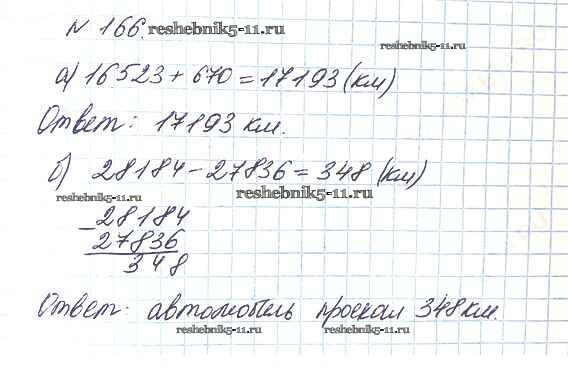 № 166.
reshebnik5-11.ru
reshebnik5-11.ru
а) 16523 + 670 = 17193 (км)
Ответ: 17193 км.
б) 28184 - 27836 = 348 (км)
reshebnik5-11.ru
reshebnik5-11.ru
- 28184
27836
348
Ответ: автомобиль проехал 348 км.
reshebnik5-11.ru
reshebnik5-11.ru